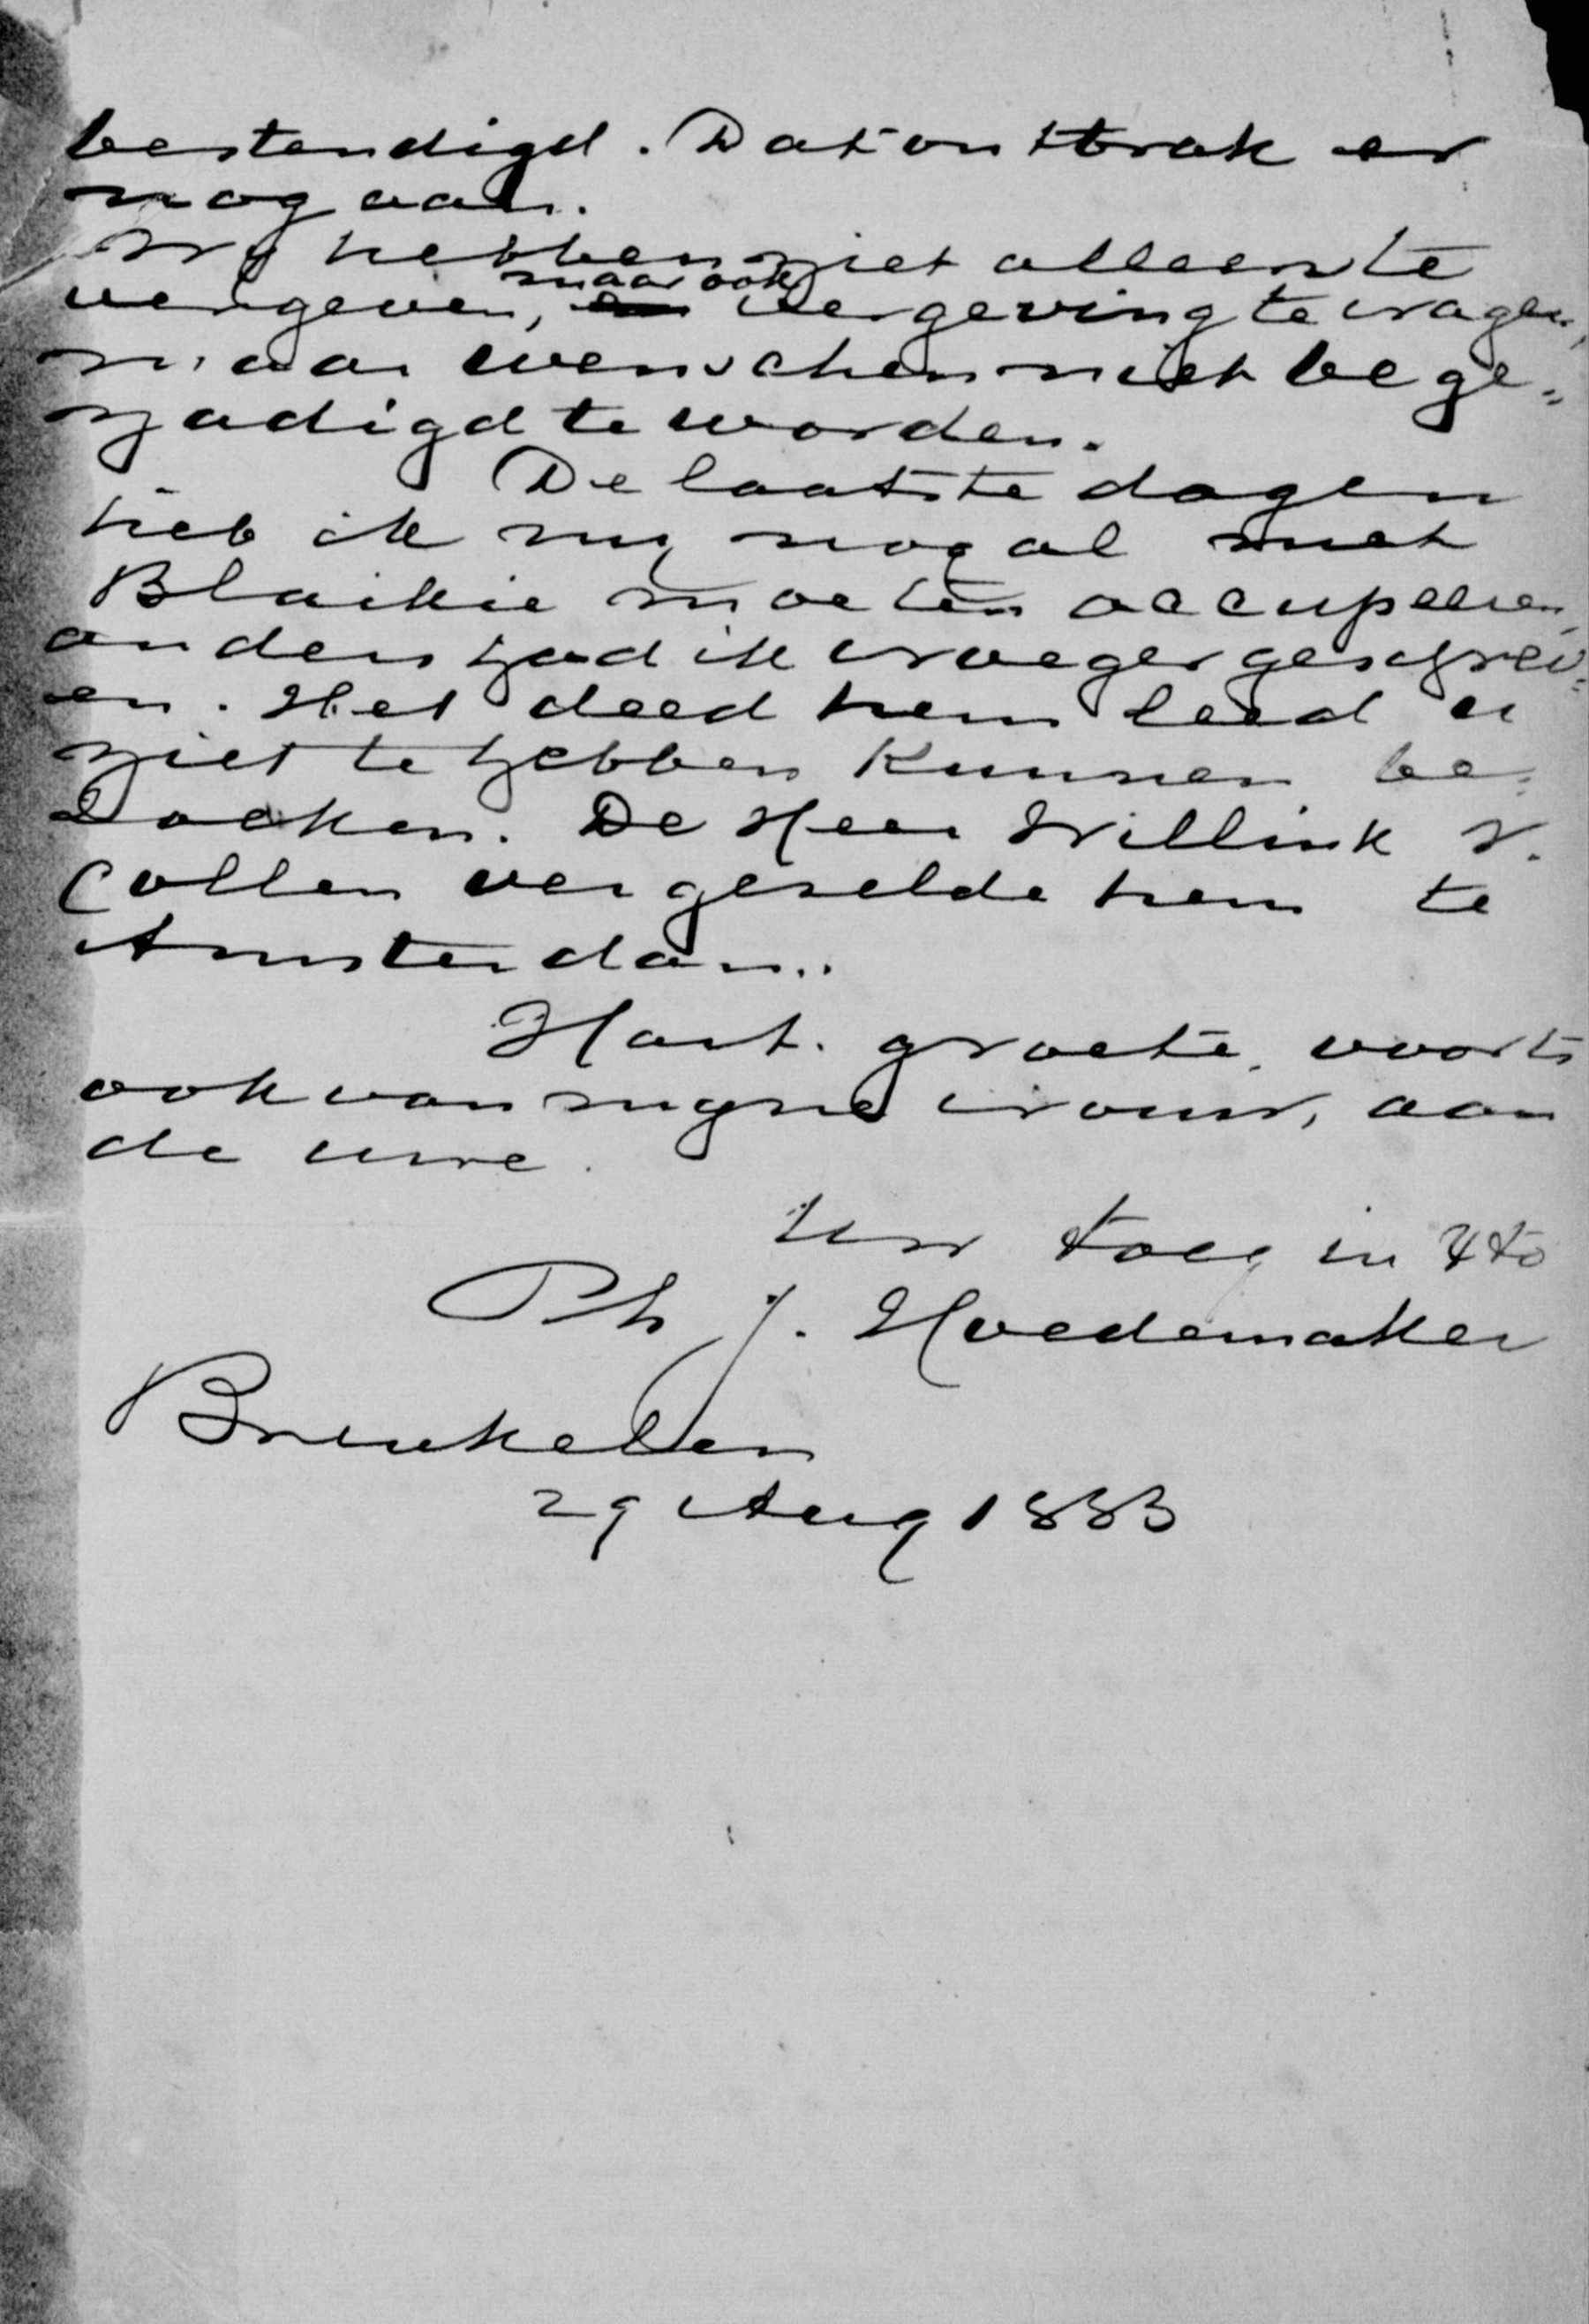 bestendigd. Dat onttrok er
nog aan.
Wy hebben niet alleen te
vergeven, maar ook vergeving te vragen,
maar wenschen niet bege=
nadigd te worden.
De laatste dagen
heb ik my nog al met
Blaikie moeten occupeeren,
anders had ik vroeger geschrev=
en. Het deed hem leed u
niet te hebben kunnen be=
zoeken. De Heer Willink v.
Collen vergezelde hem te
Amsterdam.
Hart. groete, voorts
ook van myne vrouw, aan
de uwe.
Uw toeg in
Ph J. Hoedemaker
Breukelen
29 Aug 1883